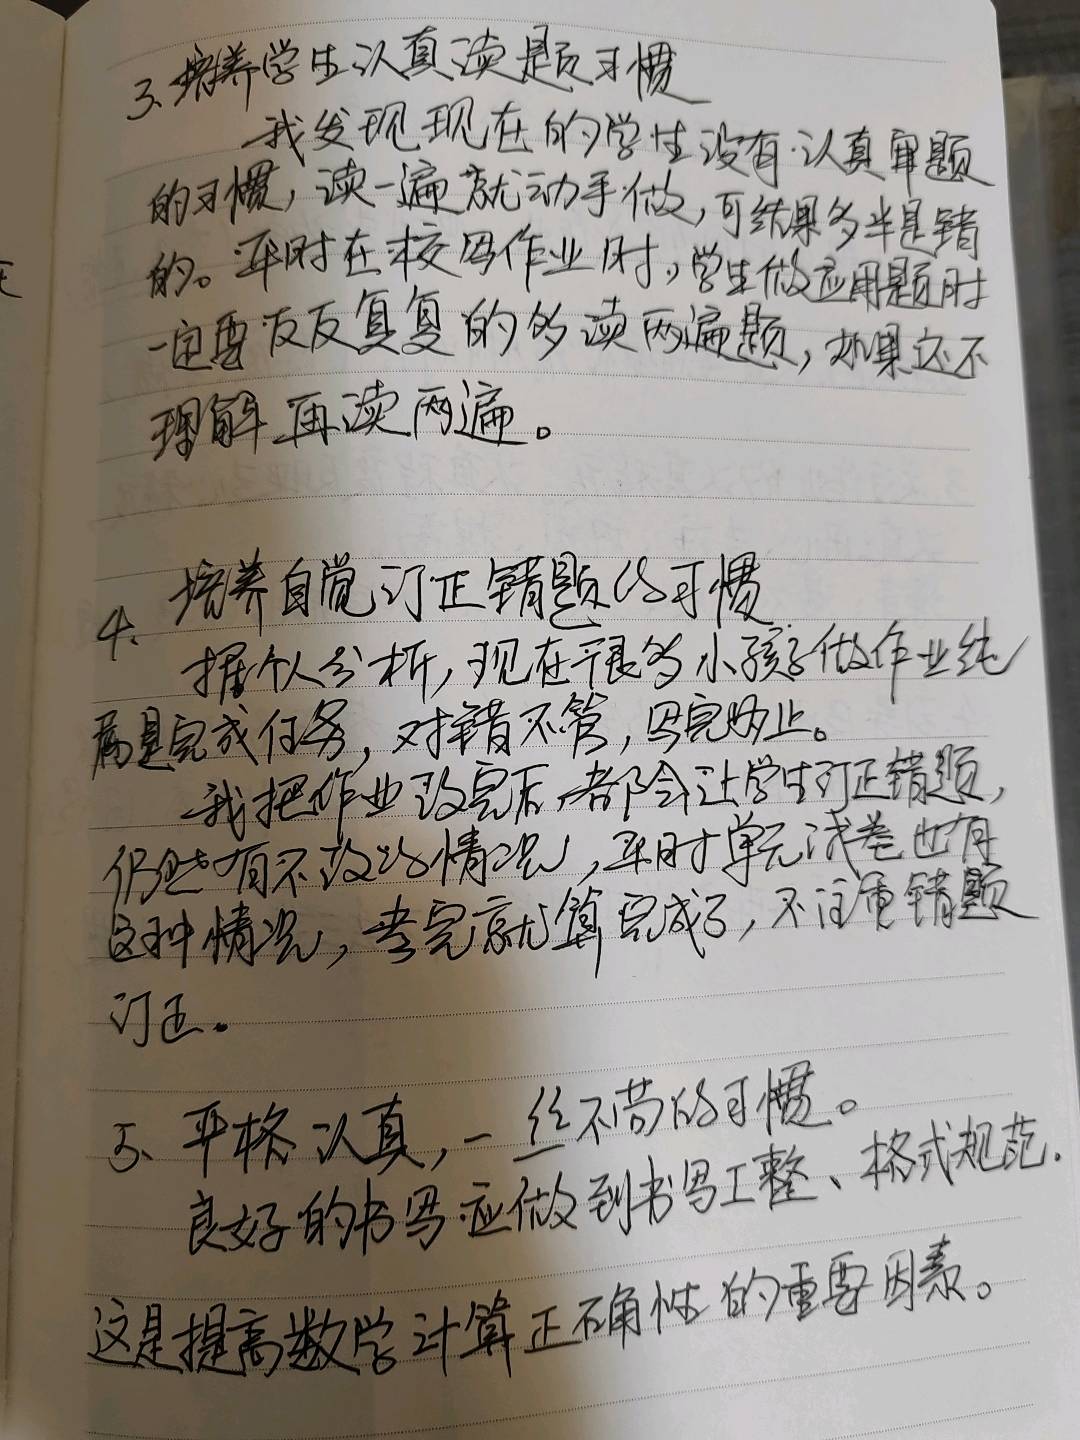 3、培养学生认真读题习惯
我发现现在的学生没有认真审题
的习惯，读一遍就动手做，可结果多半是错
的。平时在校写作业时，学生做应用题时
一定要反反复复的多读两遍题，如果还不
理解再读两遍。
4、培养自觉订正错题的习惯
据个人分析，现在很多小孩子做作业纯
属是完成任务，对错不管，写完为止。
我把作业改完后，都会让学生订正错题，
仍然有不改的情况，平时单元试卷也有
这种情况，考完就算完成了，不注重错题
订正。
5、严格认真，一丝不苟的习惯。
良好的书写应做到书写工整、格式规范.
这是提高数学计算正确性的重要因素。